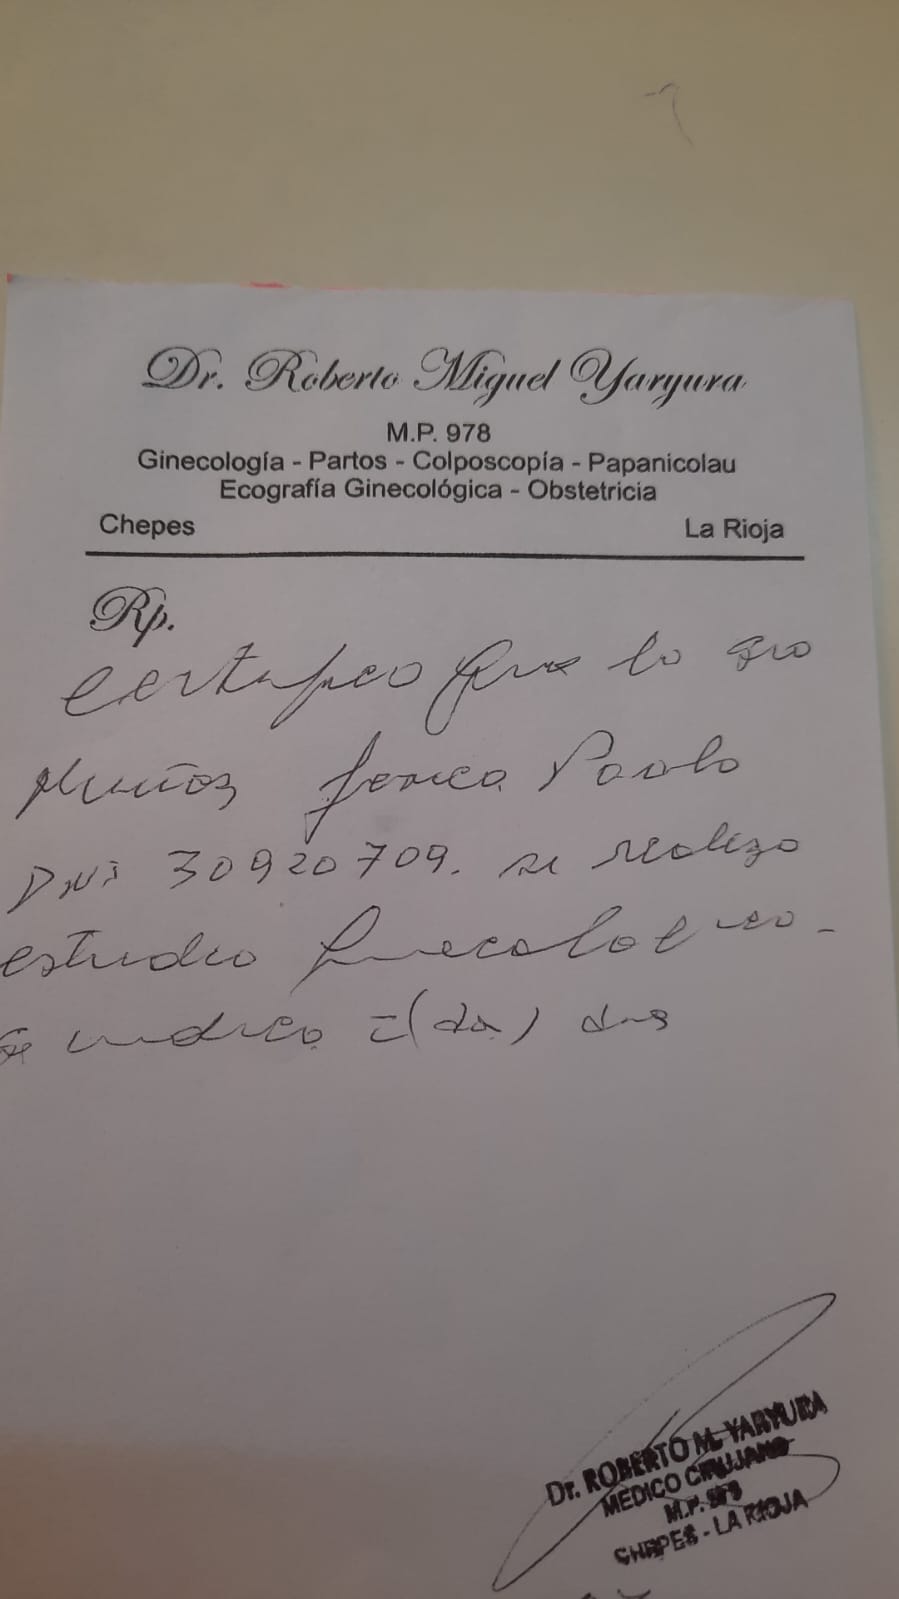 Dr. Roberto Miguel Yaryura
M.P. 978
Ginecología - Partos - Colposcopía - Papanicolau
Ecografía Ginecológica - Obstetricia
Chepes La Rioja
Rp.
Certifico que la Sra
Muñoz Paola
DNI 30920709. se realizo
estudio ginecologico -
se indica 2 (dos) dias
Dr. ROBERTO M. YARYURA
MEDICO CIRUJANO
M.P. 978
CHEPES - LA RIOJA